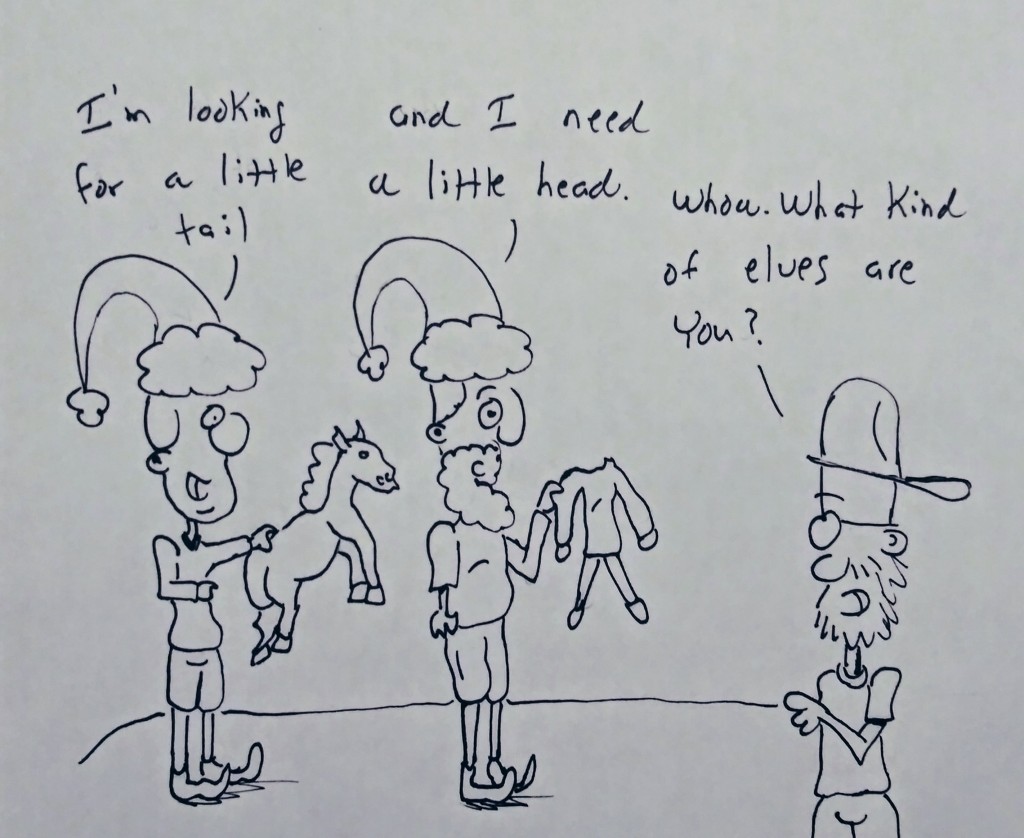 I'm looking
for a little
tail
and I need
a little head.
Whoa. What kind
of elves are
you?